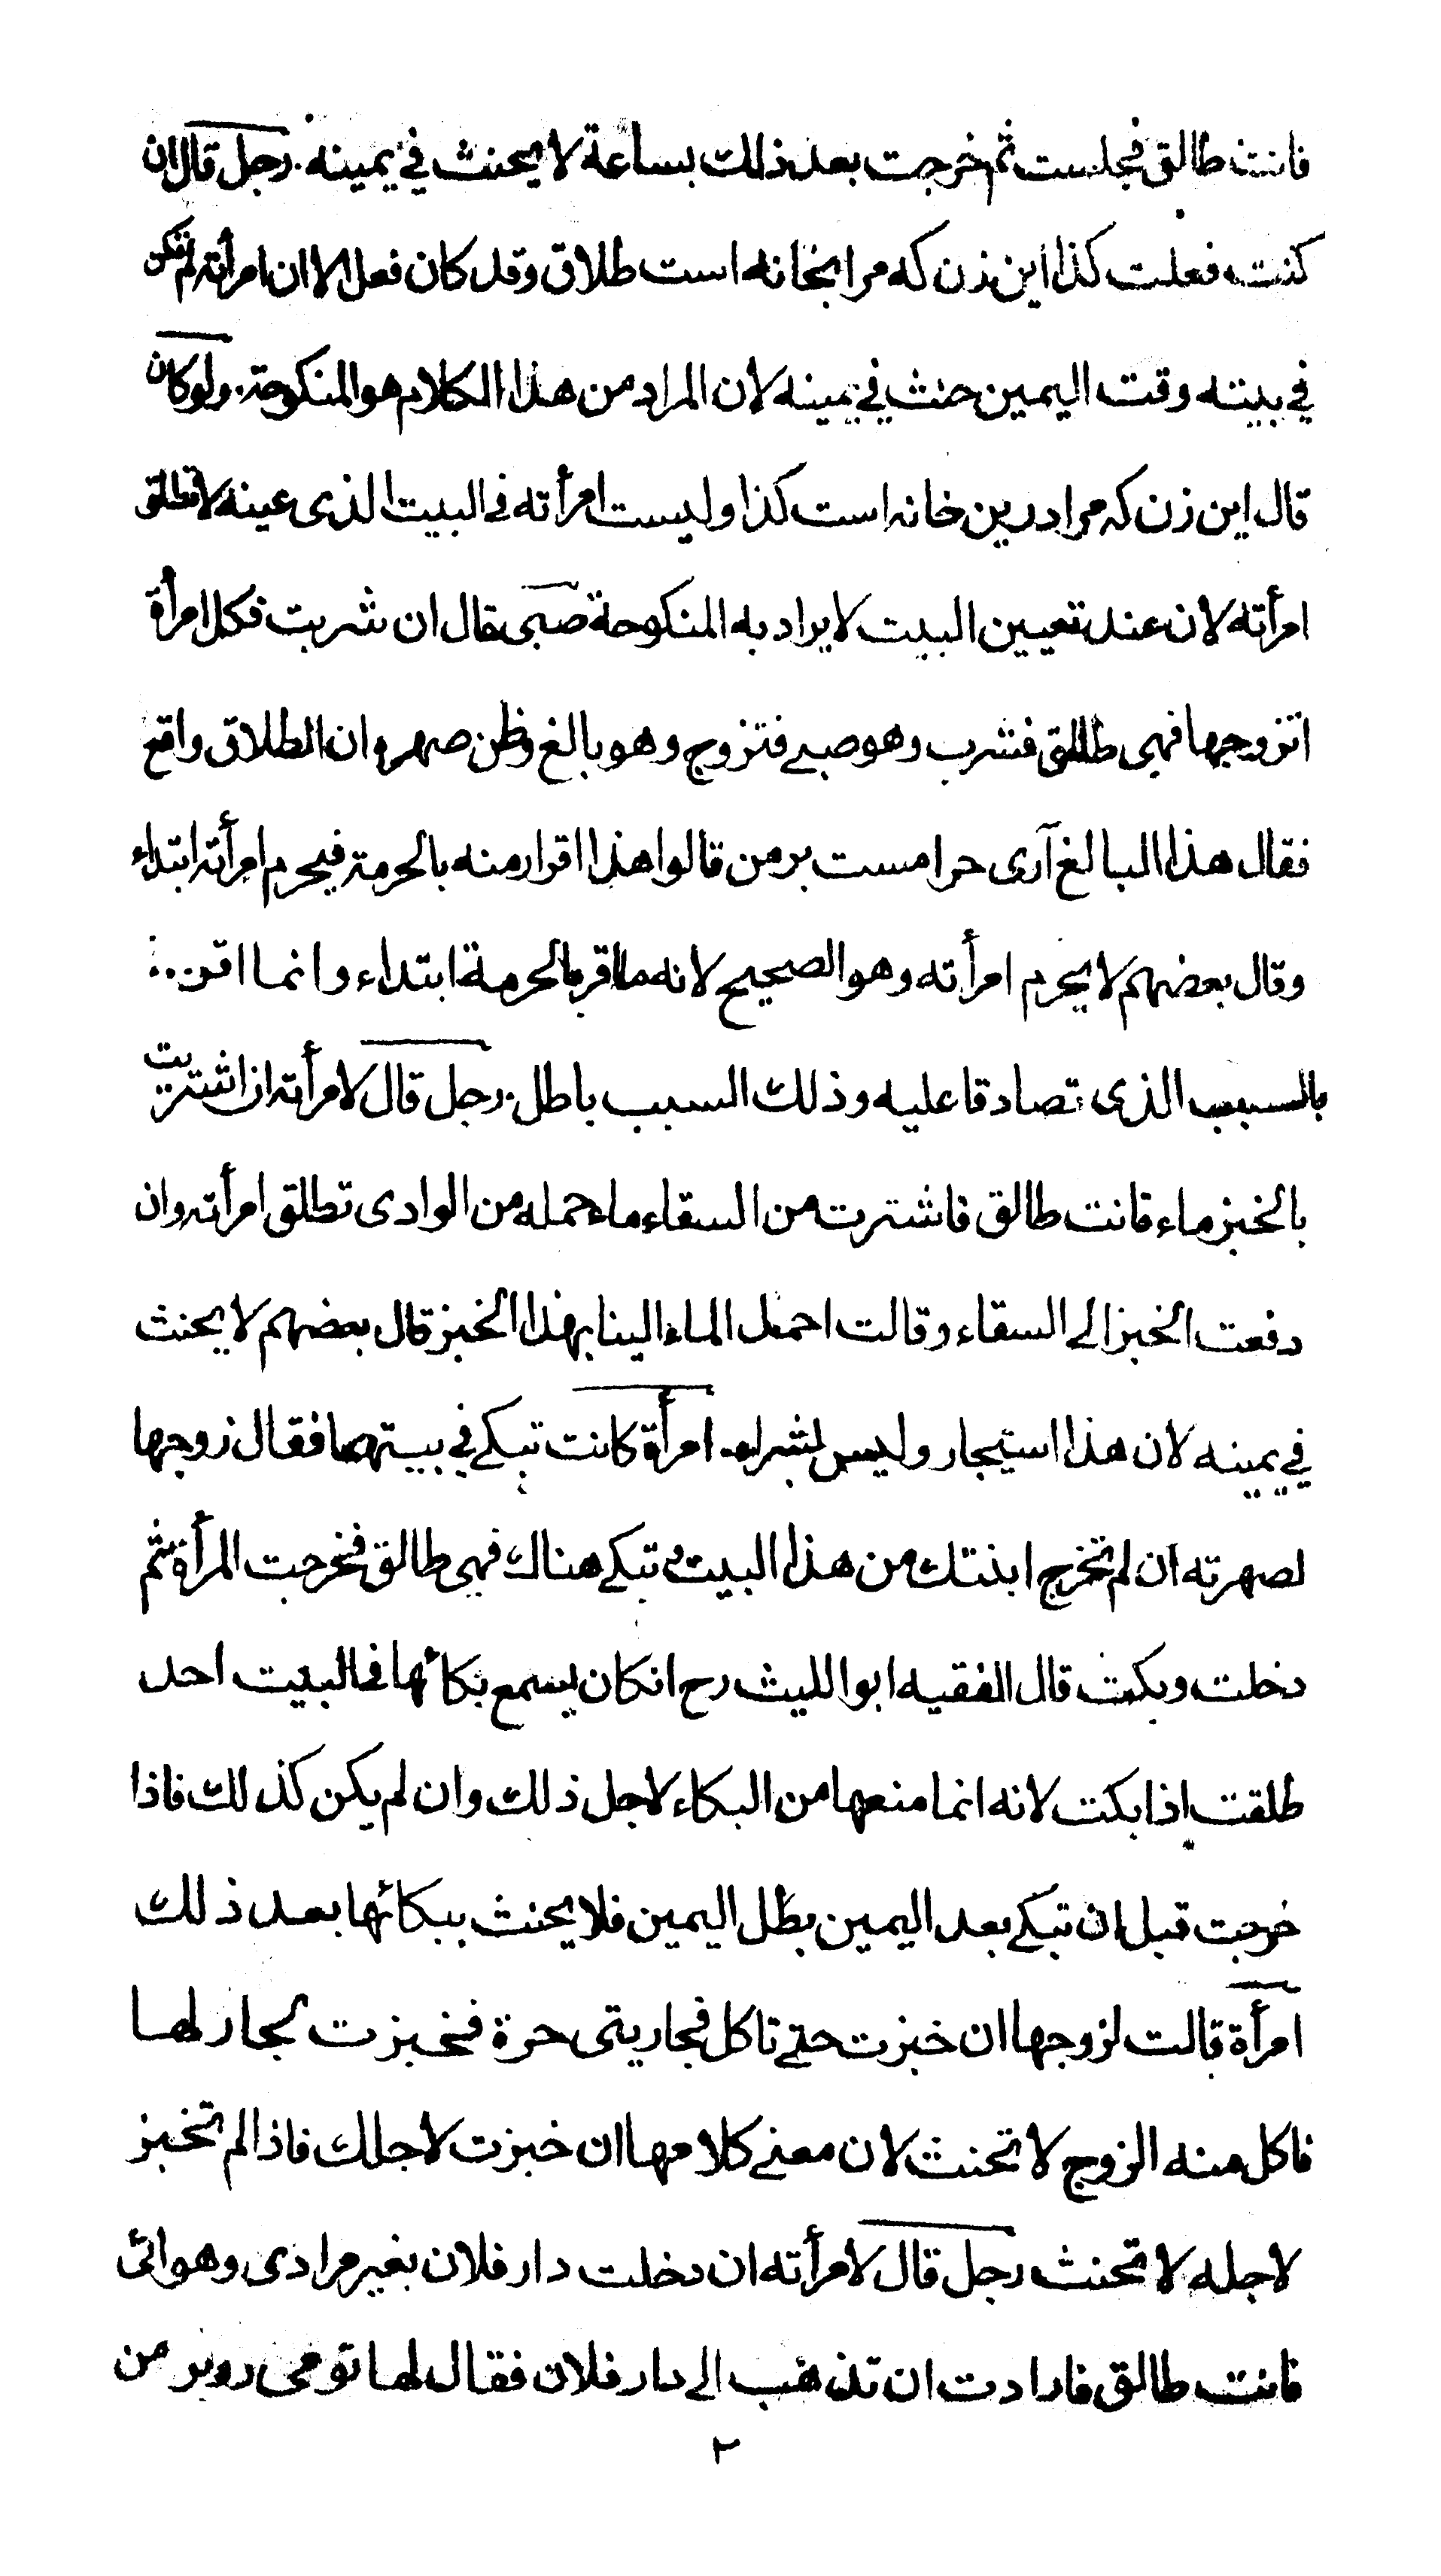 فانت طالق فجلست ثم خرجت بعد ذلك بساعة لا يحنث في يمينه . رجل قال ان
كنت فعلت كذا اين زن كه مرا بخانه است طلاق وقد كان فعل الا ان امرأته لم تكن
في بيته وقت اليمين حنث في يمينه لان المراد من هذا الكلام هو المنكوحة . ولو كان
قال اين زن كه مرا درين خانه است كذا وليست امرأته في البيت الذى عينه لا تطلق
امرأته لان عند تعيين البيت لا يراد به المنكوحة صبى قال ان شربت فكل امرأة
اتزوجها فهى طالق فشرب وهو صبي فتزوج وهو بالغ وظن صهره ان الطلاق واقع
فقال هذا البالغ آرى حرامست برمن قالوا هذا اقرار منه بالحرمة فيحرم امرأته ابتداء
وقال بعضهم لا يحرم امرأته وهو الصحيح لانه ما اقر بالحرمة ابتداء وانما اقر
بالسبب الذى تصادقا عليه وذلك السبب باطل . رجل قال لامرأته ان اشتريت
بالخبز ماء فانت طالق فاشترت من السقاء ماء حمله من الوادى تطلق امرأته وان
دفعت الخبز الى السقاء وقالت احمل الماء الينا بهذا الخبز قال بعضهم لا يحنث
في يمينه لان هذا استيجار وليس بشراء . امرأة كانت تبكي في بيتها فقال زوجها
لصهرته ان لم تخرج ابنتك من هذا البيت و تبكي هناك فهى طالق فخرجت المرأة ثم
دخلت وبكت قال الفقيه ابو الليث رح انكان يسمع بكائها في البيت احد
طلقت اذا بكت لانه انما منعها من البكاء لاجل ذلك وان لم يكن كذلك فاذا
خرجت قبل ان تبكي بعد اليمين بطل اليمين فلا يحنث ببكائها بعد ذلك
امرأة قالت لزوجها ان خبزت حتى تاكل فجاريتى حرة فخبزت لجار لها
فاكل منه الزوج لا تحنث لان معنى كلامها ان خبزت لاجلك فاذا لم تخبز
لاجله لا تحنث رجل قال لامرأته ان دخلت دار فلان بغير مرادى وهوائى
فانت طالق فارادت ان تذهب الى دار فلان فقال لها تو مى روبر من
٢